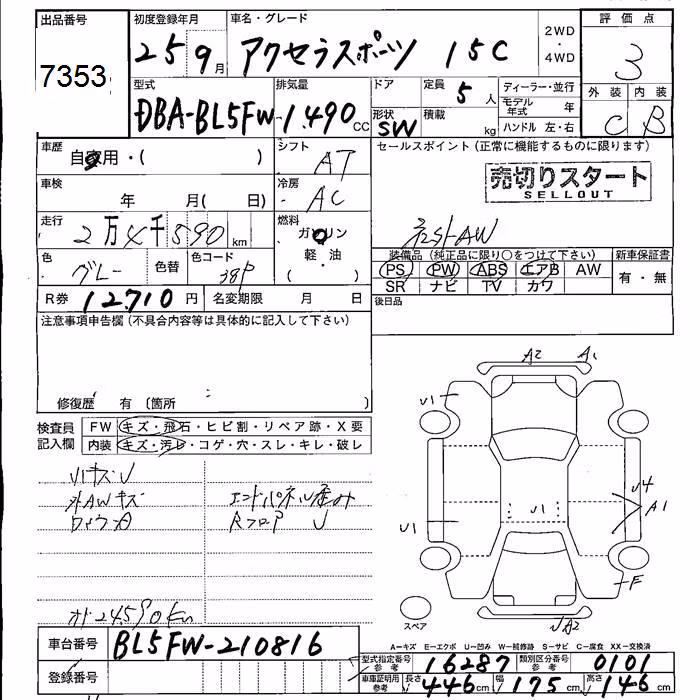 出品番号
7353
初度登録年月
25 9月
車名・グレード
アクセラスポーツ 15C
2WD
・
4WD
評価点
3
型式
DBA-BL5FW
排気量
1,490 CC
ドア
定員
5人
形状
SW
積載
kg
ディーラー・並行
モデル年式 年
ハンドル 左・右
外装 内装
C B
車歴
自家用・( )
シフト
AT
セールスポイント (正常に機能するものに限ります)
売切りスタート
SELLOUT
車検
年 月( 日)
冷房
AC
走行
2万4千590 km
燃料
ガソリン
軽油
・
( )
社外AW
装備品 (純正品に限り○をつけて下さい)
新車保証書
PS PW ABS エアB AW
SR ナビ TV カワ
有・無
色
グレー
色替
色コード
38P
R券 12,710 円
名変期限 月 日
後日品
注意事項申告欄 (不具合内容等は具体的に記入して下さい)
修復歴 有 〔箇所 〕
検査員記入欄
FW キズ・飛石・ヒビ割・リペア跡・X要
内装 キズ・汚レ・コゲ・穴・スレ・キレ・破レ
外AWキズ
エンドパネル歪み
Rフロア U
A2 A1
U1
U1
U1
U4
A1
F
A2
スペア
オド24590km
A=キズ E=エクボ U=凹み W=補修跡 S=サビ C=腐食 XX=交換済
車台番号 BL5FW-210816
型式指定番号 参考 16287
類別区分番号 参考 0101
登録番号
車庫証明用 参考
長さ 446cm
幅 175cm
高さ 146cm